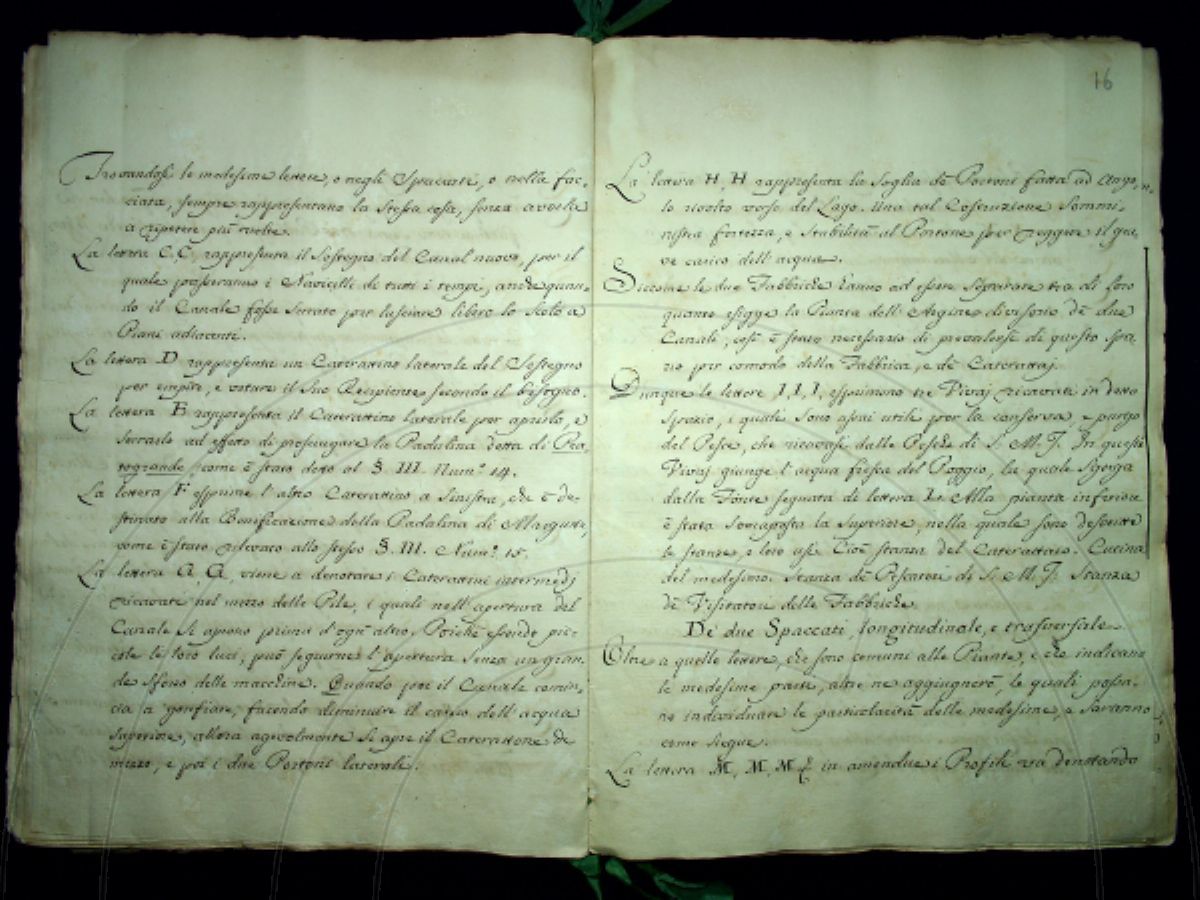 Trovandosi le medesime lettere, o negli Spaccati, o nella fac-
ciata, sempre rappresentano la stessa cosa, senza averle
a ripetere più volte.
La lettera C, C, rappresenta il Sostegno del Canal nuovo, per il
quale passeranno i Navicelli di tutti i tempi, anche quan-
do il Canale fosse serrato per lasciare libero lo scolo a
Piani adiacenti.
La lettera D rappresenta un Caterattino laterale del Sostegno
per empire, e votare il suo Recipiente secondo il bisogno.
La lettera E rappresenta il Caterattino laterale per aprirlo, e
serrarlo ad effetto di prosciugare la Padulina detta di Pra-
togrande, come è stato detto al §. III. Num.º 14.
La lettera F esprime l'altro Caterattino a sinistra, che è de-
stinato alla Bonificazione della Padulina di
come è stato rilevato allo stesso §. III. Num.º 15.
La lettera G, G, viene a denotare i Caterattini intermedj
ricavati nel mezzo delle Pile, i quali nell'apertura del
Canale si aprono prima d'ogn'altro, Poichè essendo pic-
cole le loro luci, può seguirne l'apertura senza un gran-
de sforzo delle macchine. Quando poi il Canale comin-
cia a gonfiare, facendo diminuire il carico dell'acqua
superiore, allora agevolmente si apre il Caterattone di
mezzo, e poi i due Portoni laterali.
16
La lettera H, H rappresenta la Soglia de Portoni fatta ad Ango-
lo rivolto verso del Lago. Una tal Costruzione sommi-
nistra fortezza, e stabilità al Portone per reggere il gra-
ve carico dell'acqua.
Siccome le due Fabbriche hanno ad essere separate tra di loro
quanto esigge la Pianta dell'Argine divisorio de due
Canali, così è stato necessario di prevalersi di questo spa-
zio per comodo della Fabbrica, e de Caterattaj.
Dunque le lettere I, I, I, esprimono tre Vivaj ricavati in detto
spazio, i quali sono assai utili per la conserva, e purgo
del Pesce, che ricavasi dalle Pesche di S. M. I. In questi
Vivaj giunge l'acqua fresca del Poggio, la quale sgorga
dalla Fonte segnata di lettera L. Alla pianta inferiore
è stata sovraposta la superiore, nella quale sono descritte
le stanze, e loro usi. Cioè stanza del Caterattaio. Cucina
del medesimo. Stanza de Pescatori di S. M. I. Stanza
de Visitatori delle Fabbriche.
De' due Spaccati longitudinale, e trasversale
Oltre a quelle lettere, che sono comuni alle Piante, e che indicano
le medesime parti, altre ne aggiugnerò, le quali possa-
no individuare le particolarità delle medesime, e saranno
come siegue.
La lettera M, M, M, in amendue i Profili va denotando